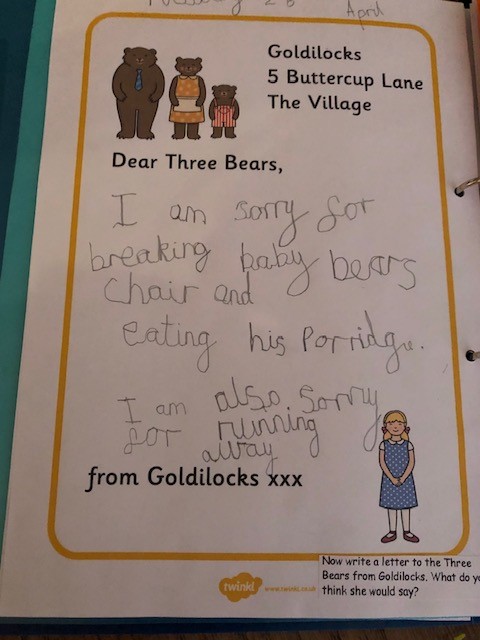 April
Goldilocks
5 Buttercup Lane
The Village
Dear Three Bears,
I am sorry for
breaking baby bears
Chair and
eating his Porridge.
I am also sorry
for running
away
from Goldilocks xxx
twinkl www.twinkl.co.uk
Now write a letter to the Three
Bears from Goldilocks. What do yo
think she would say?